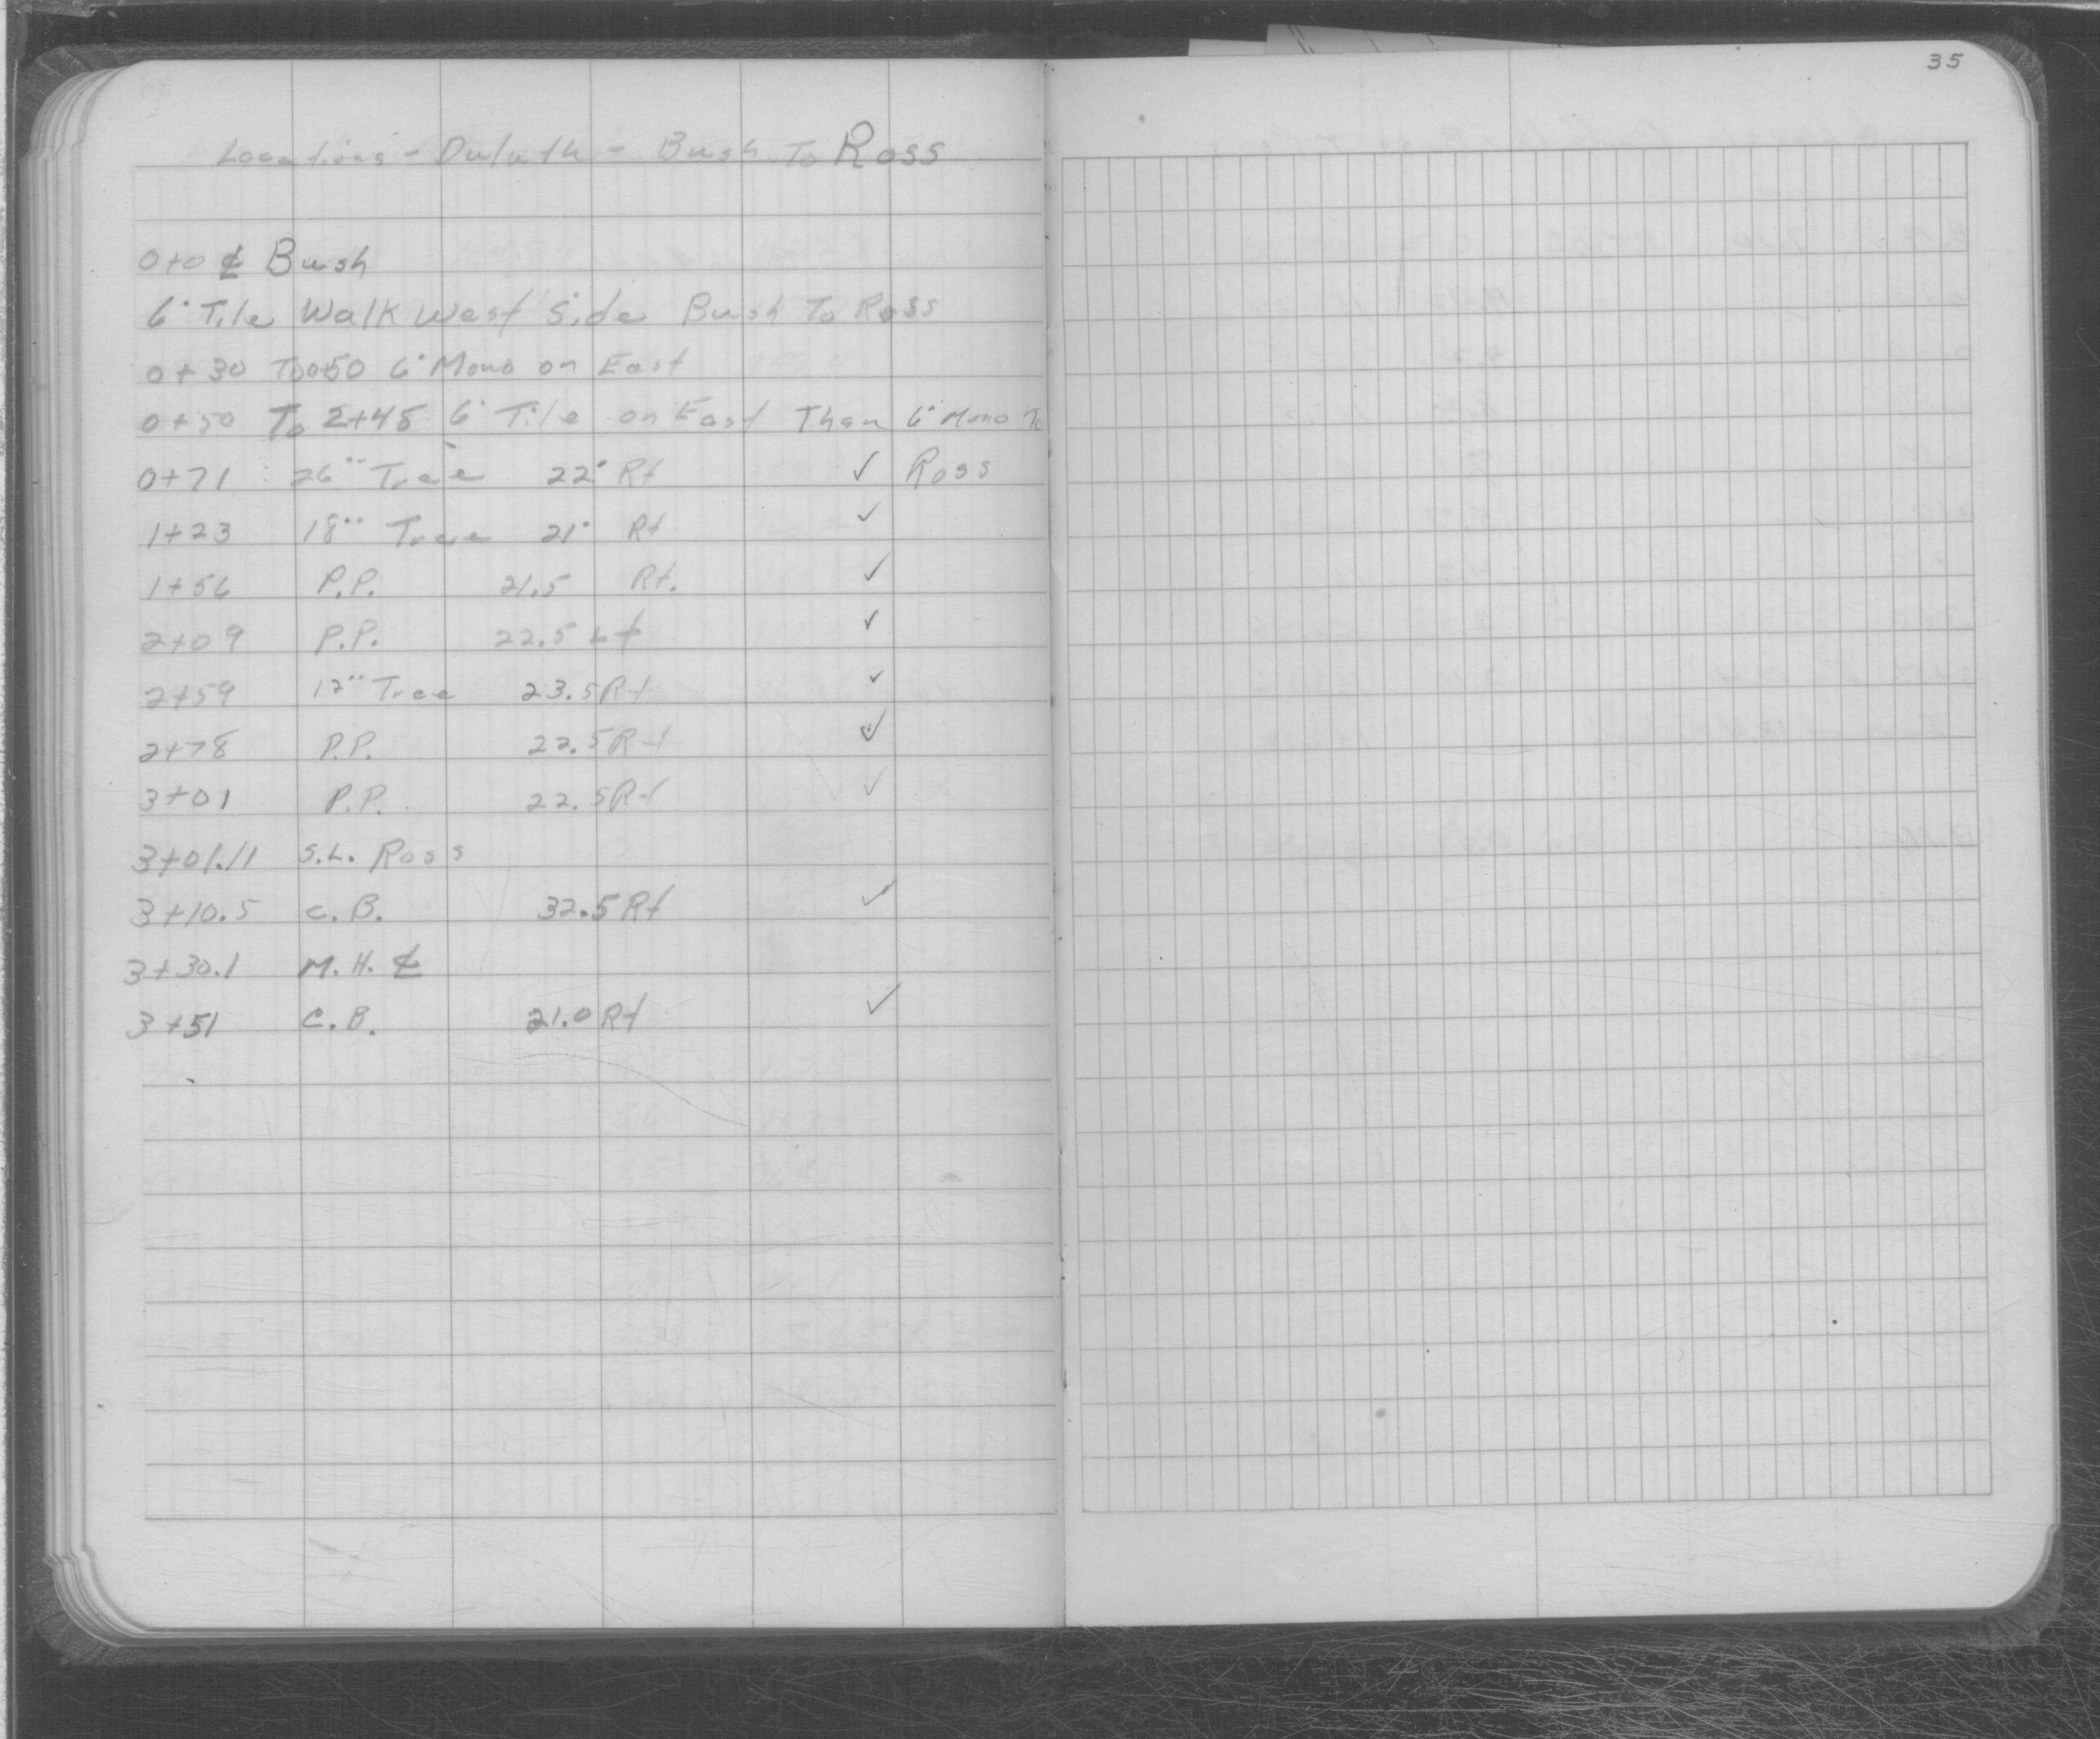 35
Locations - Duluth - Bush To Ross
0+0 ℄ Bush
6' Tile Walk West Side Bush To Ross
0+30 To 0+50 6' Mono on East
0+50 To 2+45 6' Tile on East Than 6' Mono To
0+71 26" Tree 22' Rt ✓ Ross
1+23 18" Tree 21' Rt ✓
1+56 P.P. 21.5 Rt. ✓
2+09 P.P. 22.5 Lt ✓
2+59 12" Tree 23.5 Rt ✓
2+78 P.P. 22.5 Rt ✓
3+01 P.P. 22.5 Rt ✓
3+01.11 S.L. Ross
3+10.5 C.B. 32.5 Rt ✓
3+30.1 M.H. ℄
3+51 C.B. 21.0 Rt ✓